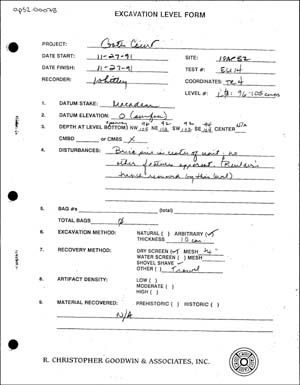 ap52-00078
EXCAVATION LEVEL FORM
PROJECT: Court
DATE START: 11-27-91 SITE: 18AP52
DATE FINISH: 11-27-91 TEST #:
RECORDER: Whitley COORDINATES:
LEVEL #: 96-105 cmbs
1. DATUM STAKE: Macadam
2. DATUM ELEVATION: 0 (surface)
3. DEPTH AT LEVEL BOTTOM: NW NE SW SE CENTER N/A
CMBD CMBS X
4. DISTURBANCES: in center of unit, no
other features apparent.
trench removed by this level)
5. BAG #s (total)
TOTAL BAGS 0
6. EXCAVATION METHOD: NATURAL ( ) ARBITRARY (✓)
THICKNESS 10 cm
7. RECOVERY METHOD: DRY SCREEN (✓) MESH 1/4
WATER SCREEN ( ) MESH
SHOVEL SHAVE ✓
OTHER ( ) Trowel
8. ARTIFACT DENSITY: LOW ( )
MODERATE ( )
HIGH ( )
9. MATERIAL RECOVERED: PREHISTORIC ( ) HISTORIC ( )
N/A
R. CHRISTOPHER GOODWIN & ASSOCIATES, INC.